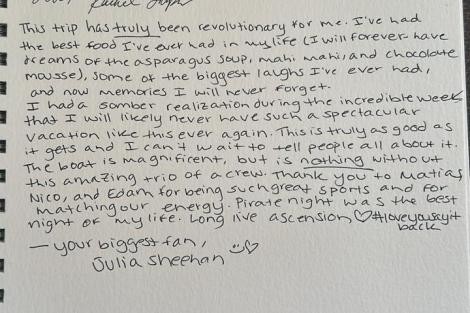 This trip has truly been revolutionary for me. I've had
the best food I've ever had in my life (I will forever have
dreams of the asparagus soup, mahi mahi, and chocolate
mousse), some of the biggest laughs I've ever had,
and now memories I will never forget.
I had a somber realization during the incredible week
that I will likely never have such a spectacular
vacation like this ever again. This is truly as good as
it gets and I can't wait to tell people all about it.
The boat is magnificent, but is nothing without
this amazing trio of a crew. Thank you to Matias,
Nico, and Edam for being such great sports and for
matching our energy. Pirate night was the best
night of my life. Long live ascension ♡ #loveyousayit
back
— your biggest fan,
Julia Sheehan ☺♡